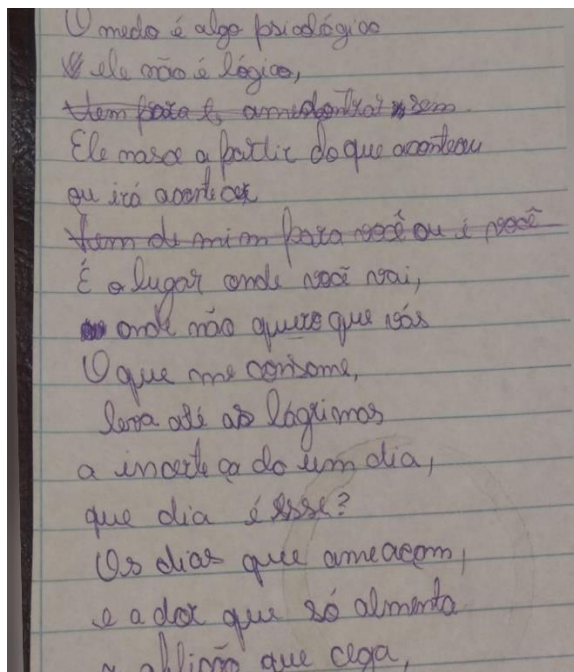 O medo é algo psicológico
ele não é lógico,
tem para te amedontrar sem
Ele nasce a partir do que aconteceu
ou irá acontecer
tem de mim para você ou é você
É o lugar onde você vai,
onde não quero que vás
O que me consome,
leva até as lágrimas
a incerteça do um dia,
que dia é esse?
Os dias que ameaçam,
e a dor que só almenta
a aflição que cega,